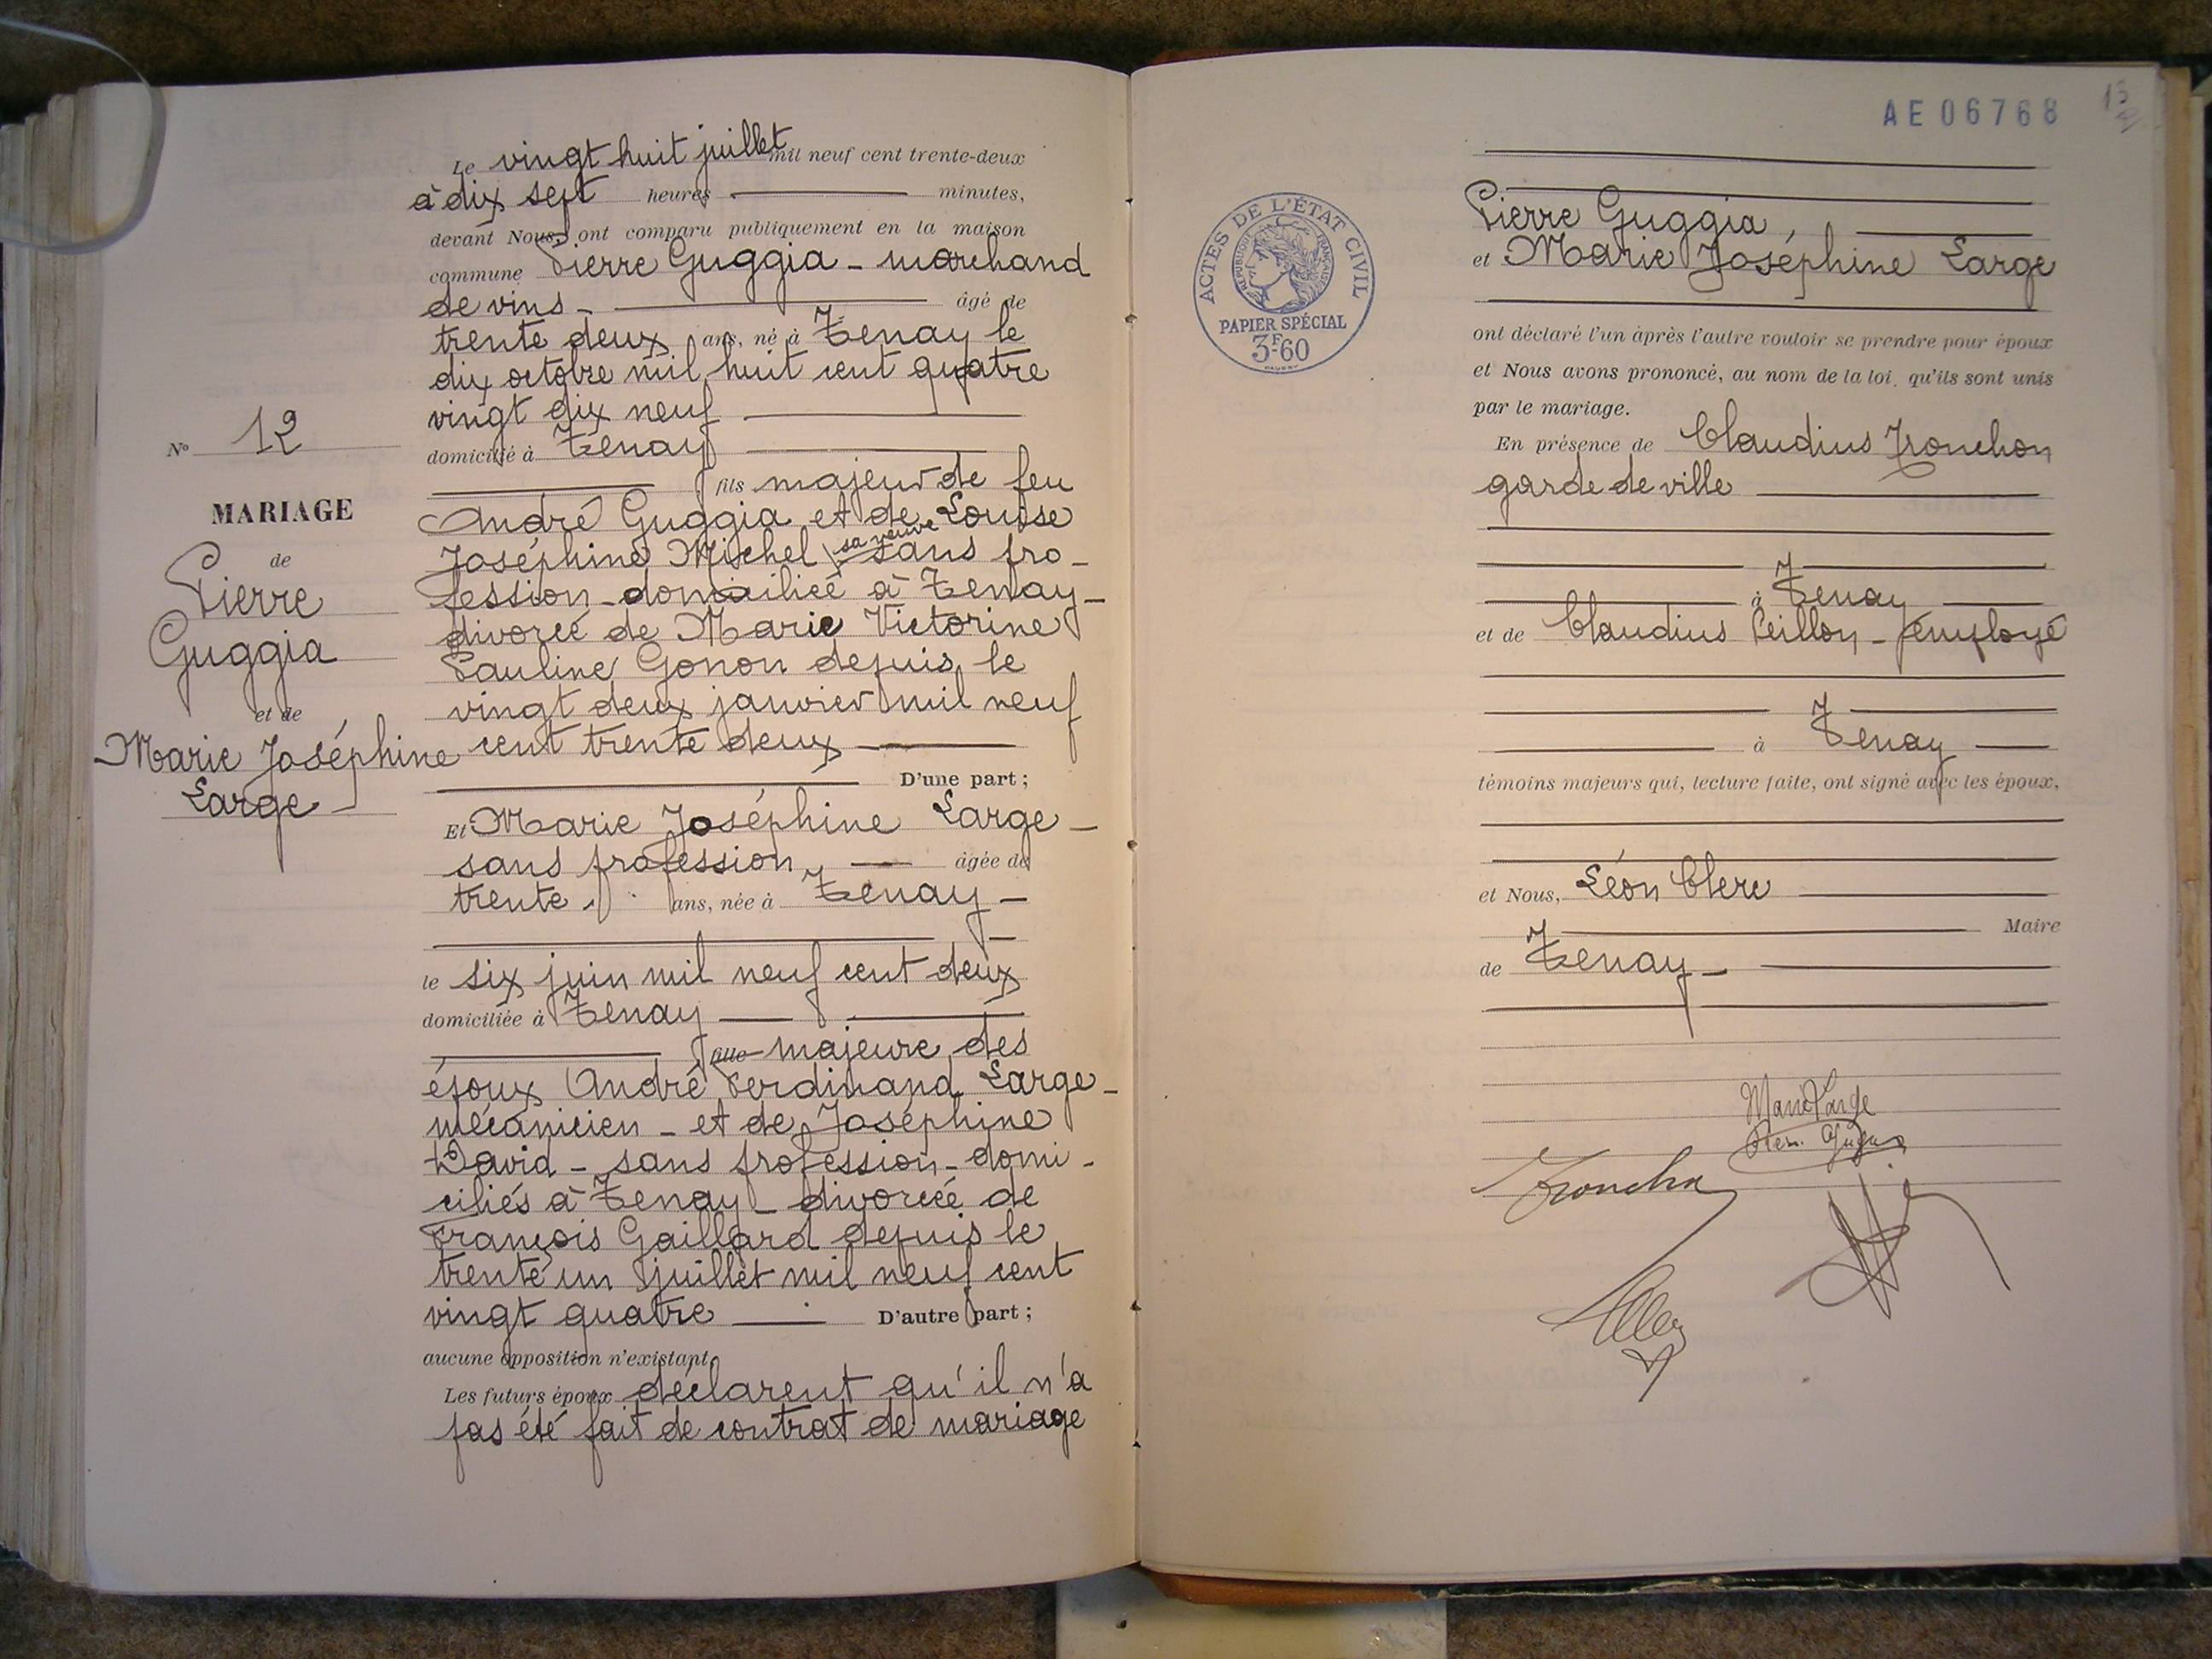 Le vingt huit juillet mil neuf cent trente-deux
à dix sept heures minutes,
devant Nous, ont comparu publiquement en la maison
commune Pierre Guggia - marchand
de vins - âgé de
trente deux ans, né à Tenay le
dix octobre mil huit cent quatre
vingt dix neuf
domicilié à Tenay
fils majeur de feu
André Guggia et de Louise
Joséphine Michel sa veuve sans pro-
fession - domiciliée à Tenay -
divorcé de Marie Victorine
Pauline Gonon depuis le
vingt deux janvier mil neuf
cent trente deux
D'une part ;
Et Marie Joséphine Large -
sans profession, âgée de
trente ans, née à Tenay -
le six juin mil neuf cent deux
domiciliée à Tenay
fille majeure des
époux André Ferdinand Large -
mécanicien - et de Joséphine
David - sans profession - domi-
ciliés à Tenay - divorcée de
François Gaillard depuis le
trente un juillet mil neuf cent
vingt quatre D'autre part ;
aucune opposition n'existant.
Les futurs époux déclarent qu'il n'a
pas été fait de contrat de mariage
N° 12
MARIAGE
de
Pierre
Guggia
et de
Marie Joséphine
Large
AE06768
13
ACTES DE L'ÉTAT CIVIL
RÉPUBLIQUE FRANÇAISE
PAPIER SPÉCIAL
3F.60
Pierre Guggia,
et Marie Joséphine Large
ont déclaré l'un après l'autre vouloir se prendre pour époux
et Nous avons prononcé, au nom de la loi, qu'ils sont unis
par le mariage.
En présence de Claudius Tronchon
garde de ville
à Tenay
et de Claudius Peillon - employé
à Tenay
témoins majeurs qui, lecture faite, ont signé avec les époux,
et Nous, Léon Clerc
Maire
de Tenay -
Marie Large
Tronchon